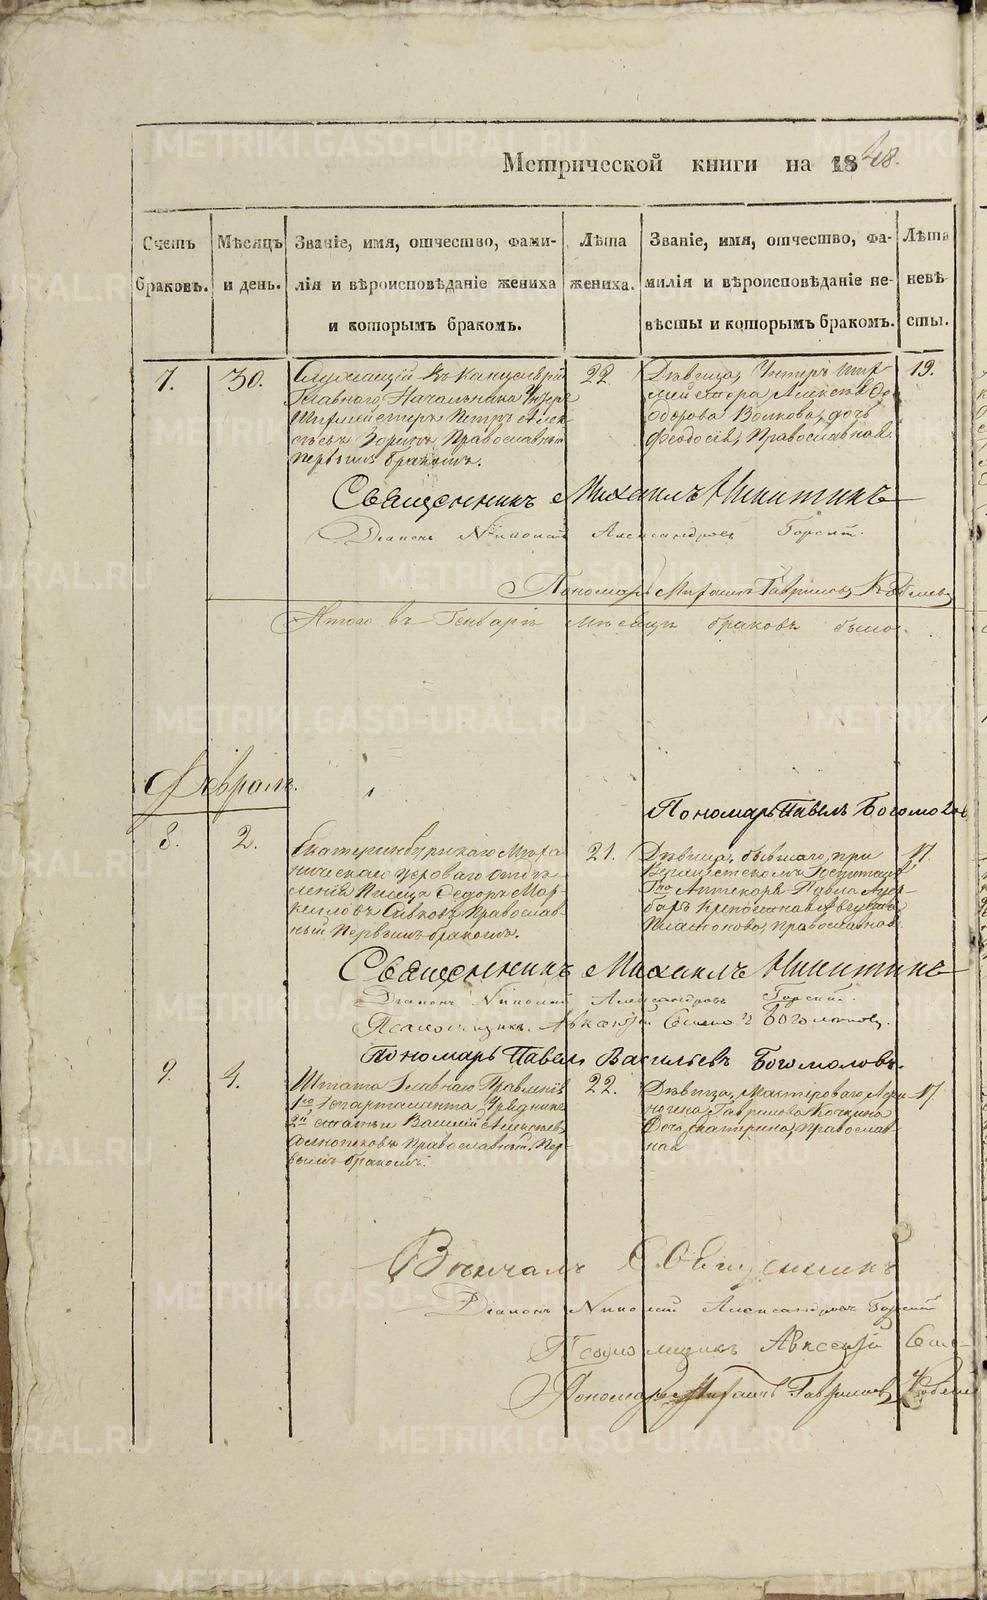 Метрической книги на 1848.
Счетъ браковъ.
Мѣсяцъ и день.
Званіе, имя, отчество, фами-
лія и вѣроисповѣданіе жениха
и которымъ бракомъ.
Лѣта
жениха.
Званіе, имя, отчество, фа-
милія и вѣроисповѣданіе не-
вѣсты и которымъ бракомъ.
Лѣта
невѣ-
сты.
7.
30.
Служащій въ Канцеляріи
Главнаго Начальника Унтеръ
Шихтмейстеръ Петръ Алек-
сѣевъ Зоринъ, Православный
первымъ бракомъ.
22.
Дѣвица, Унтеръ Шихт
мейстера Алексѣя Ѳе
одорова Волкова, дочь
Феодосія, Православная.
19.
Священникъ Михаилъ Никитинъ
Діаконъ Николай Александровъ Горскій.
Пономарь Гавриловъ
Итого въ Генварѣ мѣсяцѣ браковъ было
Февраль.
Пономарь Павелъ Богомолов
8.
2.
Екатеринбургскаго
Писецъ Федоръ Мар-
келловъ Православ-
ный Первымъ бракомъ.
21.
Дѣвица, бывшаго при
Аптекаря Павла
Августа
Платонова, православная
17.
Священникъ Михаилъ Никитинъ
Діаконъ Николай Александровъ Горскій.
Псаломщикъ Авксентій Богомоловъ.
Пономарь Павелъ Васильевъ Богомоловъ.
9.
4.
Штата Главнаго Правленія
1го Департамента Урядникъ
2й статьи Василій Алексѣевъ
Православный, Пер-
вымъ бракомъ.
22.
Дѣвица, Мастероваго
Гаврилова Кочкина
дочь Екатерина, Православ-
ная
17.
Вѣнчалъ Священникъ
Діаконъ Николай Александровъ Горскій
Псаломщикъ Авксентій
Пономарь Гавриловъ
METRIKI.GASO-URAL.RU